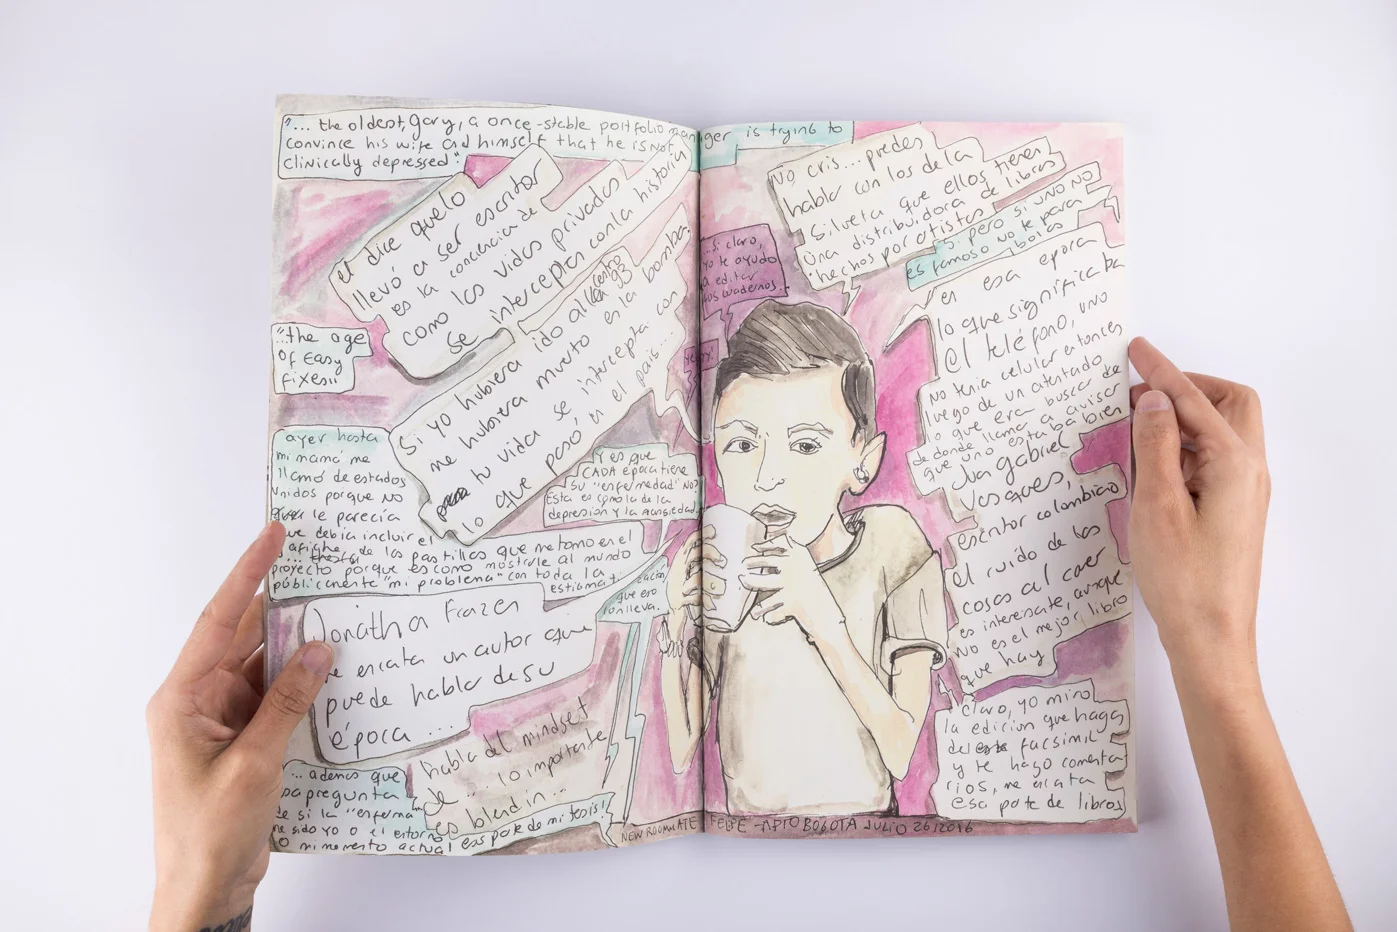 "... the oldest, Gary, a once-stable portfolio manager is trying to
convince his wife and himself that he is not
clinically depressed".
el dice que lo
llevó a ser escritor
es la conciencia de
como las vidas privadas
se intercepta con la historia
"the age
Of Easy
fixes"
Si yo hubiera ido al centro
en 93
me hubiera muerto en la bomba
tu vida se intercepta con
lo que pasó en el país...
ayer hasta
mi mamá me
llamó de estados
Unidos porque no
le parecía
que debía incluir el
afiche de las pastillas que me tomo en el
proyecto porque es como mostrarle al mundo
públicamente "mi problema" con toda la
estigmati
zación
que eso
conlleva.
Y es que
CADA época tiene
su "enfermedad" NO?
Esta es como la de la
depresión y la ansiedad..
Jonatha Frazen
me encata un autor que
puede hablar de su
época...
habla del mindset
de ... lo importante
es blend in...
"... ademas que
esa pregunta
de si la "enferma"
he sido yo o el entorno
o mi momento actual es parte de mi tesis!
NEW ROOMMATE FELIPE - APTO BOGOTA JULIO 26 / 2016
No cris... puedes
hablar con los de la
Silueta que ellos tienen
una distribuidora de libros
hechos por artistas
si pero si uno no
es famoso no te para
bolas
..si claro,
yo te ayudo
a editar
tus cuadernos...
en esa epoca
lo que significaba
el teléfono, uno
no tenia celular entonces
luego de un atentado
lo que era buscar de
donde llamar a avisar
que uno estaba bien
Jua gabriel
Vasques,
escritor colombiano
el ruido de las
cosas al caer
es interesante, aunque
no es el mejor libro
que hay
claro, yo miro
la edicion que hagas
del facsimil
y te hago comenta
rios, me encata
esa parte de libros